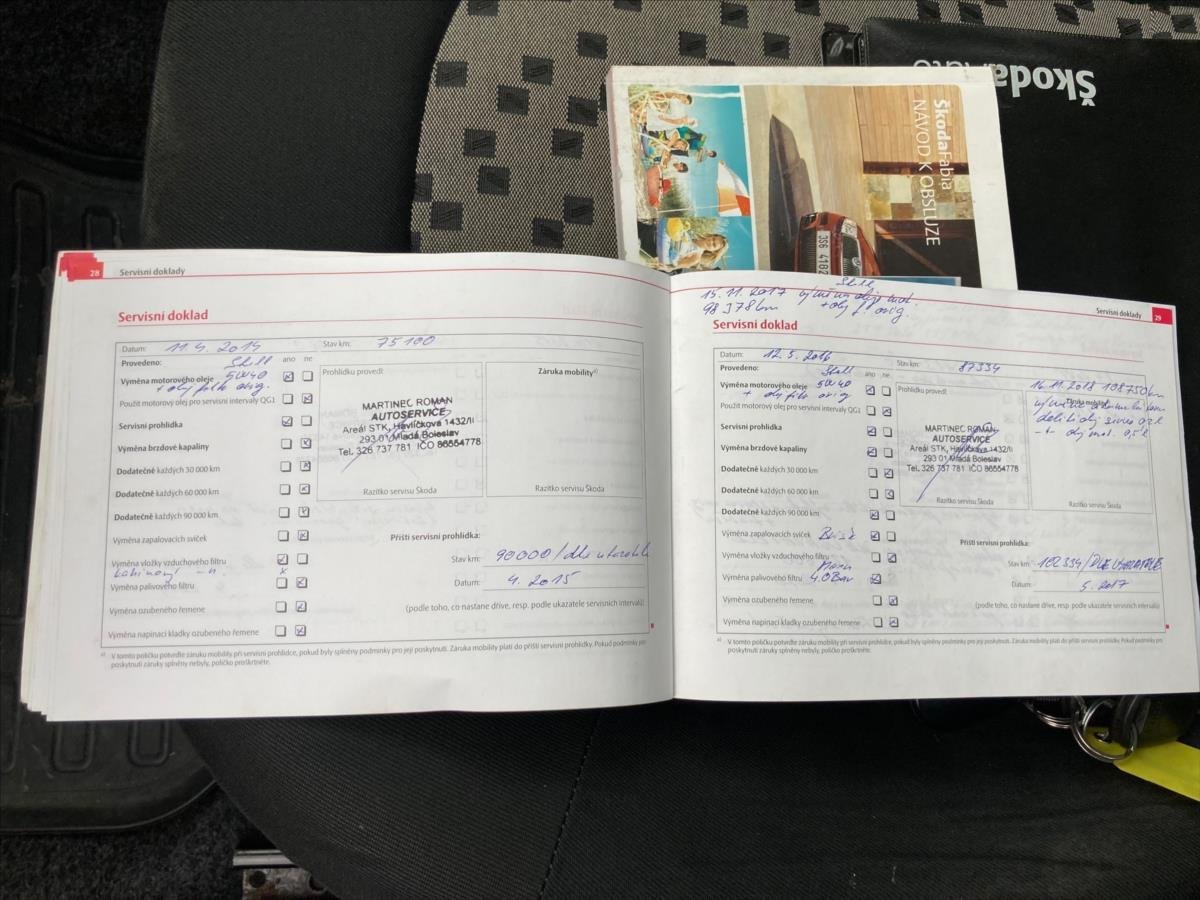 ŠkodaAuto
ŠkodaFabia
NÁVOD K OBSLUZE
3S6 4182
28 Servisní doklady
Servisní doklad
Datum: 11.4. 2014 Stav km: 75 100
Provedeno: Shell ano ne
Výměna motorového oleje 5W40
+ olej filtr orig.
Použit motorový olej pro servisní intervaly QG1
Servisní prohlídka
Výměna brzdové kapaliny
Dodatečně každých 30 000 km
Dodatečně každých 60 000 km
Dodatečně každých 90 000 km
Výměna zapalovacích svíček
Výměna vložky vzduchového filtru
Výměna palivového filtru
Výměna ozubeného řemene
Výměna napínací kladky ozubeného řemene
Prohlídku provedl
MARTINEC ROMAN
AUTOSERVICE
Areál STK, Havlíčkova 1432/II
293 01 Mladá Boleslav
Tel. 326 737 781 IČO 86554778
Razítko servisu Škoda
Záruka mobility a)
Razítko servisu Škoda
Příští servisní prohlídka:
Stav km: 90000/dle ukazatele
Datum: 4. 2015
(podle toho, co nastane dříve, resp. podle ukazatele servisních intervalů)
a) V tomto políčku potvrďte záruku mobility při servisní prohlídce, pokud byly splněny podmínky pro její poskytnutí. Záruka mobility platí do příští servisní prohlídky. Pokud podmínky pro
poskytnutí záruky splněny nebyly, políčko proškrtněte.
Servisní doklady 29
Shell
15.11.2017 výměna oleje mot.
98 378 km + olej f. orig.
Servisní doklad
Datum: 12.5. 2016 Stav km: 87334
Provedeno: Shell ano ne
Výměna motorového oleje 5W40
+ olej filtr orig
Použit motorový olej pro servisní intervaly QG1
Servisní prohlídka
Výměna brzdové kapaliny
Dodatečně každých 30 000 km
Dodatečně každých 60 000 km
Dodatečně každých 90 000 km
Výměna zapalovacích svíček
Výměna vložky vzduchového filtru
Výměna palivového filtru 4,0 Bar
Výměna ozubeného řemene
Výměna napínací kladky ozubeného řemene
Prohlídku provedl
MARTINEC ROMAN
AUTOSERVICE
Areál STK, Havlíčkova 1432/II
293 01 Mladá Boleslav
Tel. 326 737 781 IČO 86554778
Razítko servisu Škoda
16.11.2018 108750 km
Záruka mobility
Razítko servisu Škoda
Příští servisní prohlídka:
Stav km: 102334/DLE UKAZATELE
Datum: 5. 2017
(podle toho, co nastane dříve, resp. podle ukazatele servisních intervalů)
a) V tomto políčku potvrďte záruku mobility při servisní prohlídce, pokud byly splněny podmínky pro její poskytnutí. Záruka mobility platí do příští servisní prohlídky. Pokud podmínky pro
poskytnutí záruky splněny nebyly, políčko proškrtněte.